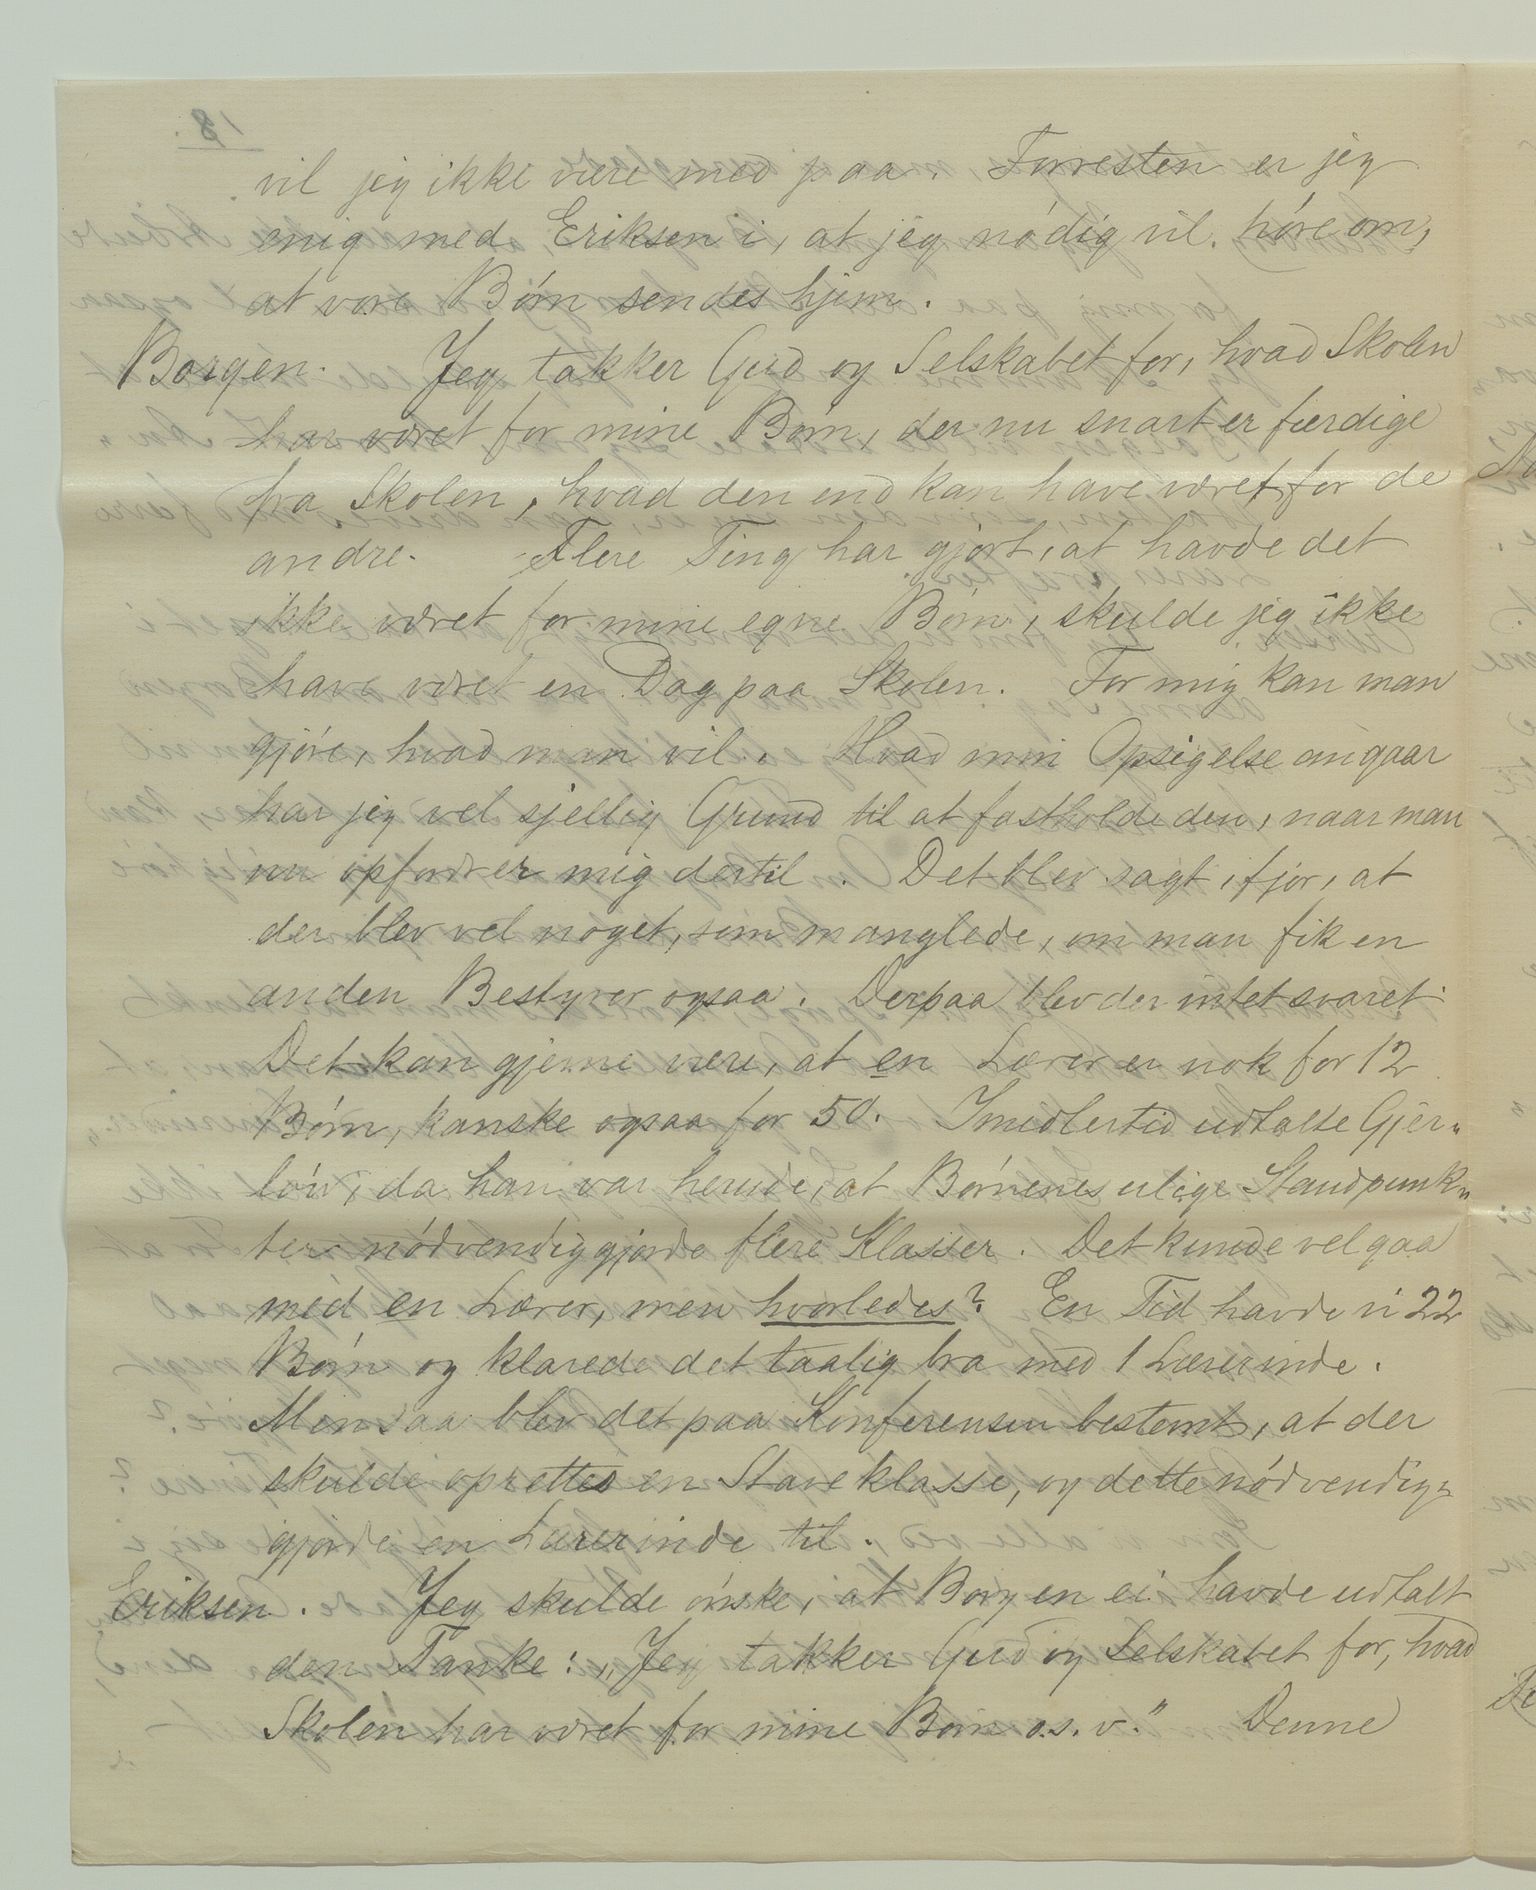 vil jeg ikke være med paa. Forresten er jeg
enig med Eriksen i, at jeg nødig vil høre om,
at vore Børn sendes hjem.
Borgen. Jeg takker Gud og Selskabet for, hvad Skolen
har været for mine Børn, der nu snart er færdige
fra Skolen, hvad den end kan have været for de
andre. Flere Ting har gjort, at havde det
ikke været for mine egne Børn, skulde jeg ikke
have været en Dag paa Skolen. For mig kan man
gjøre, hvad man vil. Hvad min Opsigelse angaar
har jeg vel sjellig Grund til at fastholde den, naar man
nu opfordrer mig dertil. Det blev sagt ifjor, at
der blev vel noget, som manglede, om man fik en
anden Bestyrer ogsaa. Derpaa blev der intet svaret.
Det kan gjerne være, at en Lærer er nok for 12
Børn, kanske ogsaa for 50. Imidlertid udtalte Gjer„
løv, da han var herude, at Børnenes ulige Standpunk„
ter nødvendiggjorde flere Klasser. Det kunde vel gaa
med en Lærer, men hvorledes? En Tid havde vi 22
Børn og klarede det taalig bra med 1 Lærerinde.
Men saa blev det paa Konferensen bestemt, at der
skulde oprettes en Staveklasse, og dette nødvendig„
gjorde en Lærerinde til.
Eriksen. Jeg skulde ønske, at Borgen ei havde udtalt
den Tanke: „Jeg takker Gud og Selskabet for, hvad
Skolen har været for mine Børn o.s.v." Denne